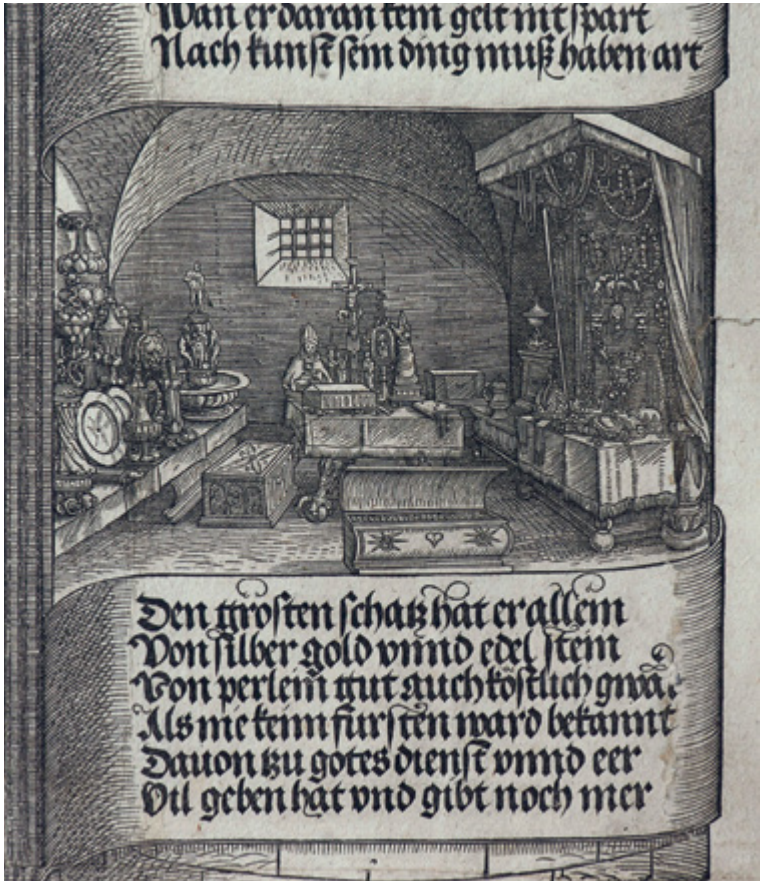 Wan er daran kein gelt nit spart
Nach kunst sein ding muß haben art
Den grosten schatz hat er allein
Von silber gold vnnd edel stein
Von perlein gut auch köstlich
Als nie keinn fursten ward bekannt
Dauon tzu gotes dienst vnnd eer
Vil geben hat vnd gibt noch mer